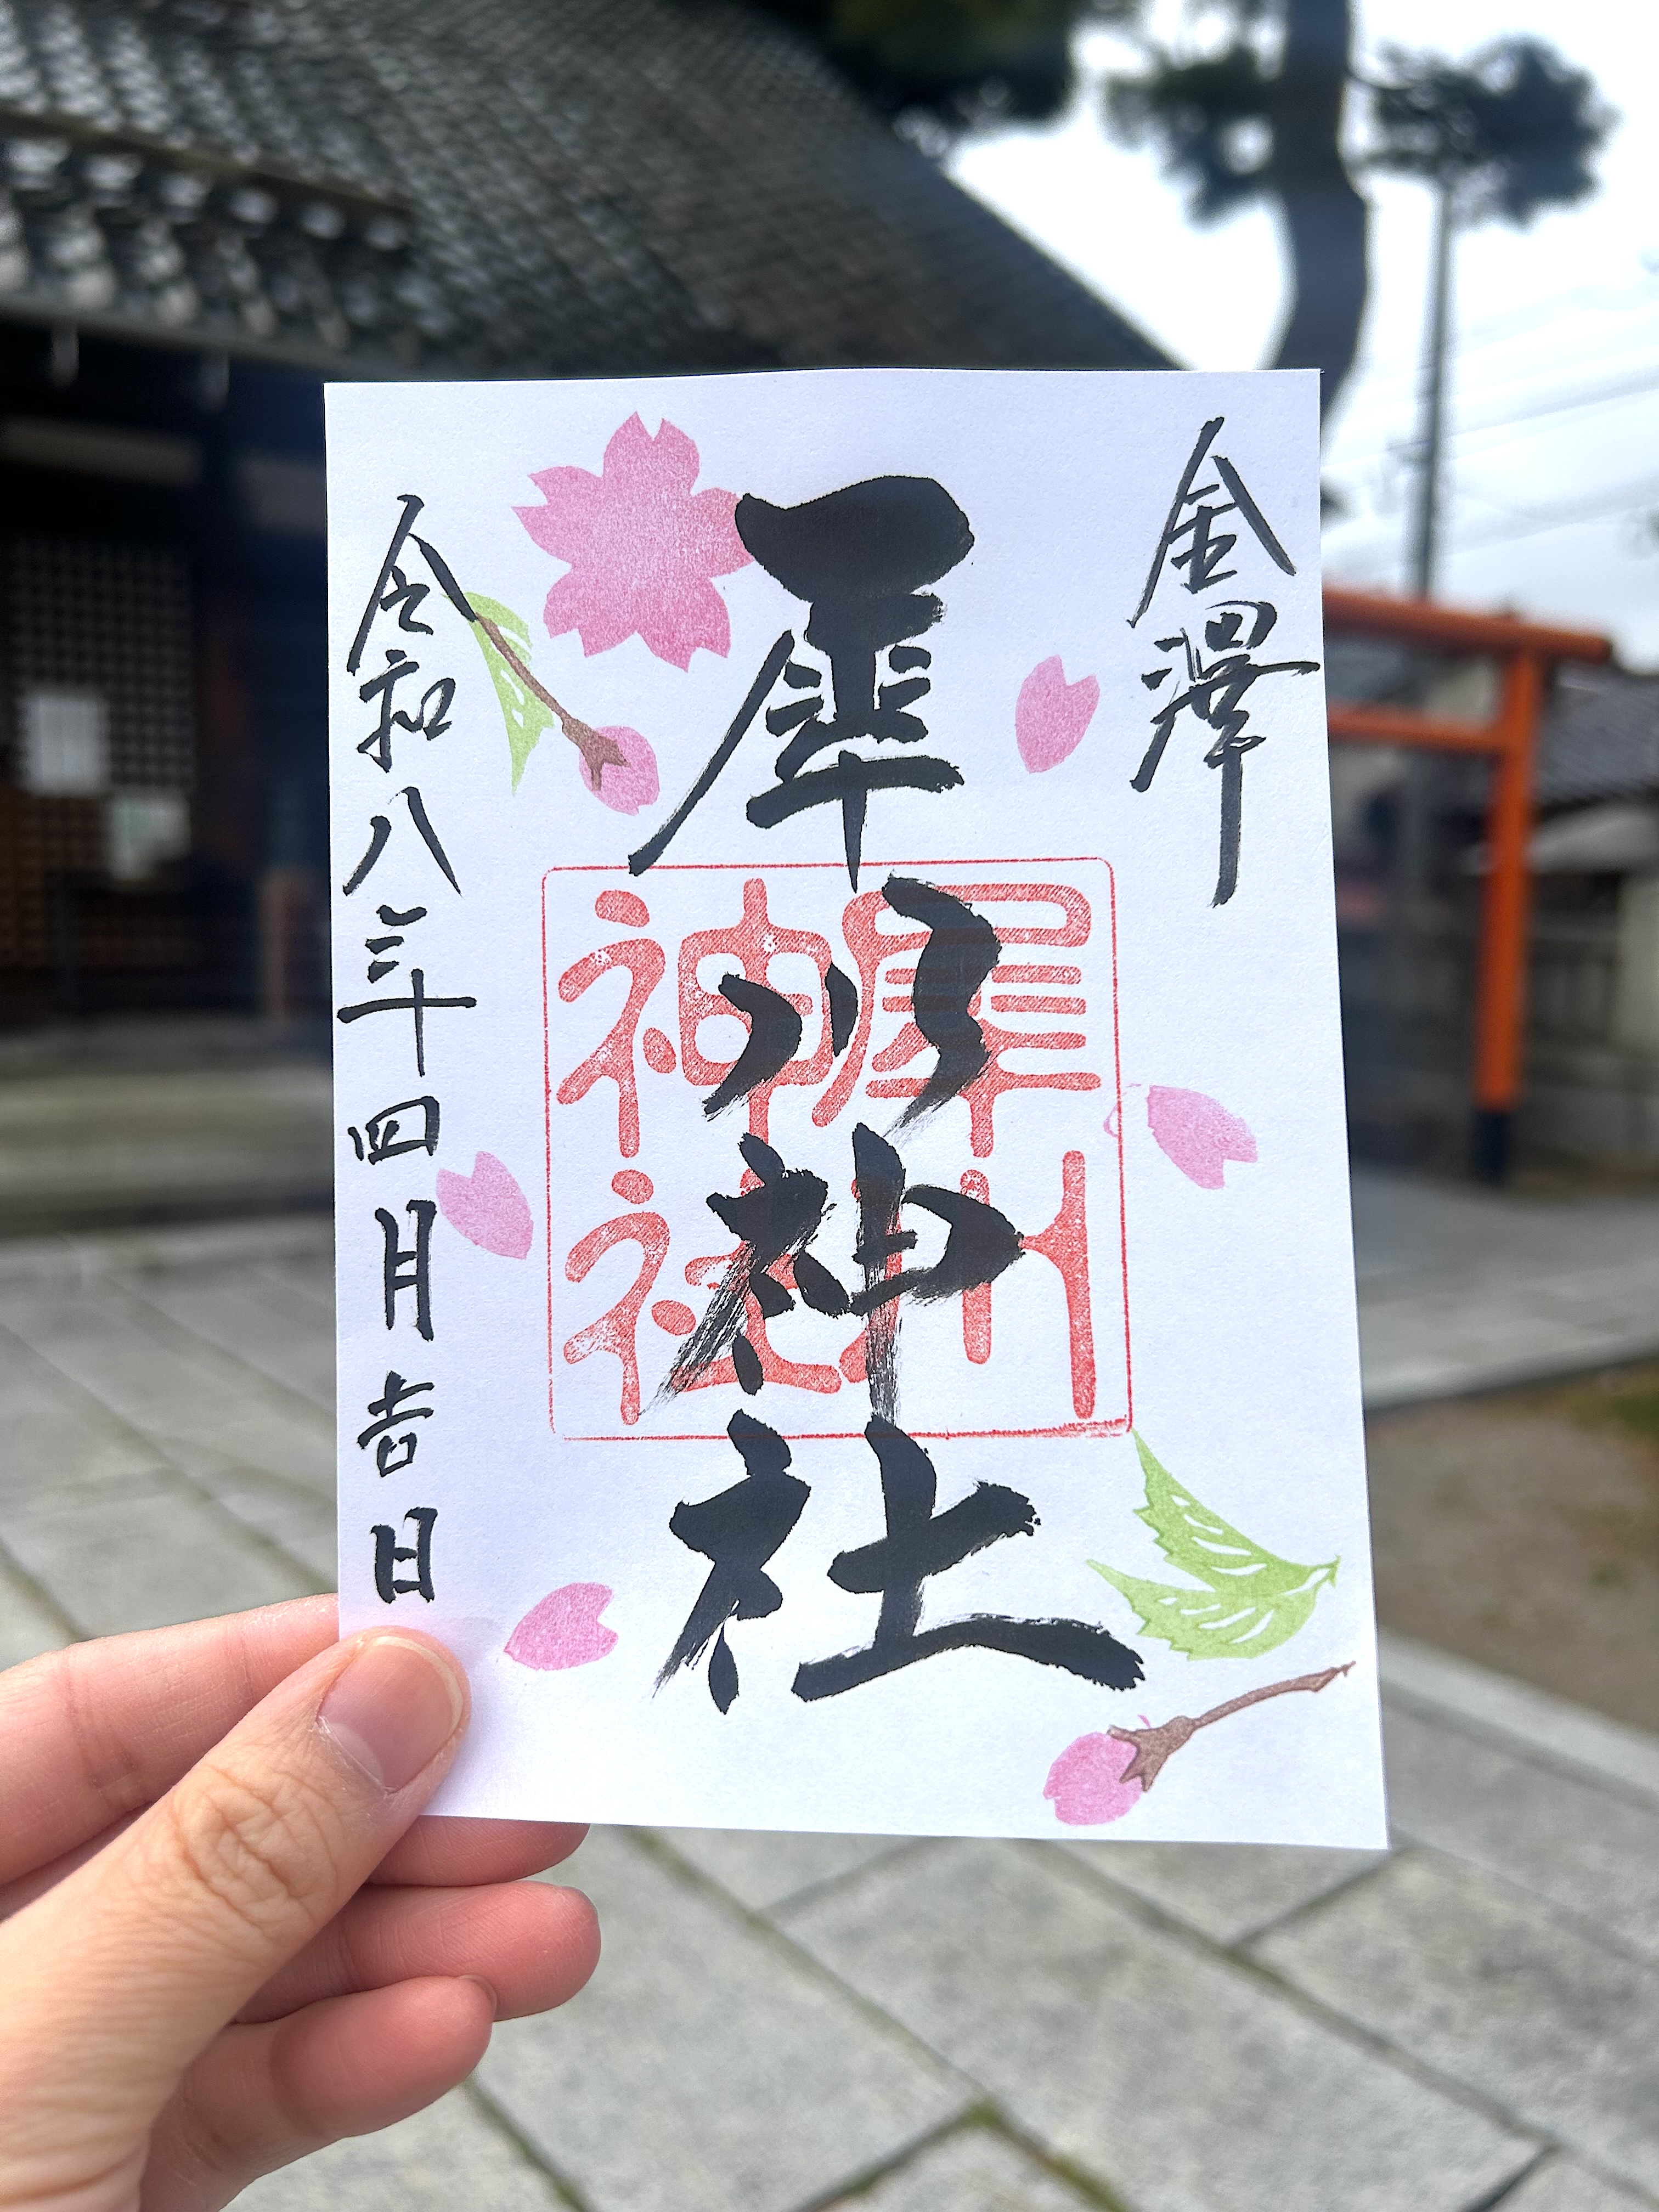 金澤
犀川神社
犀川
神社
令和八年四月吉日